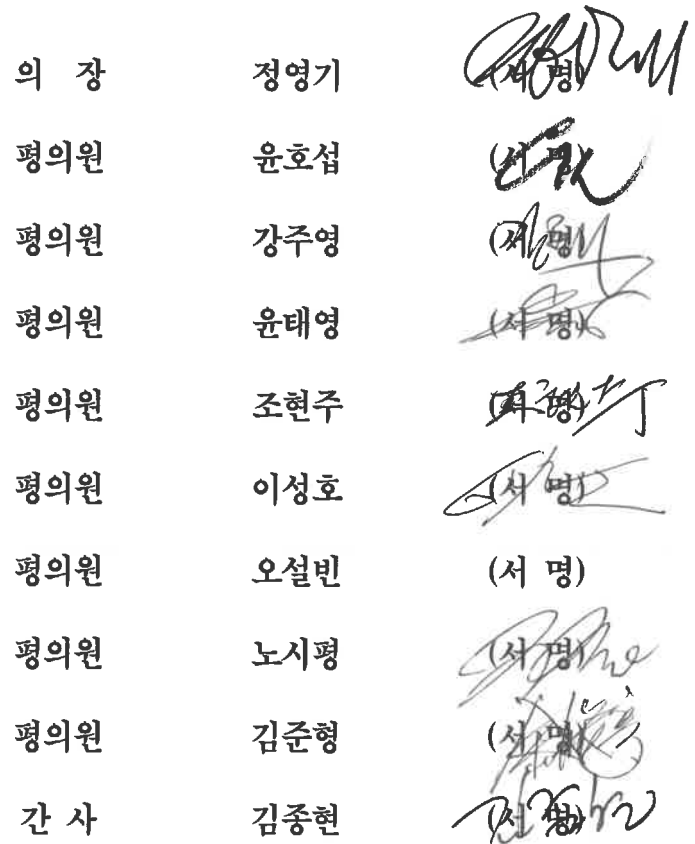 의 장 정영기 (서 명)
평의원 윤호섭 (서 명)
평의원 강주영 (서 명)
평의원 윤태영 (서 명)
평의원 조현주 (서 명)
평의원 이성호 (서 명)
평의원 오설빈 (서 명)
평의원 노시평 (서 명)
평의원 김준형 (서 명)
간 사 김종현 (서 명)